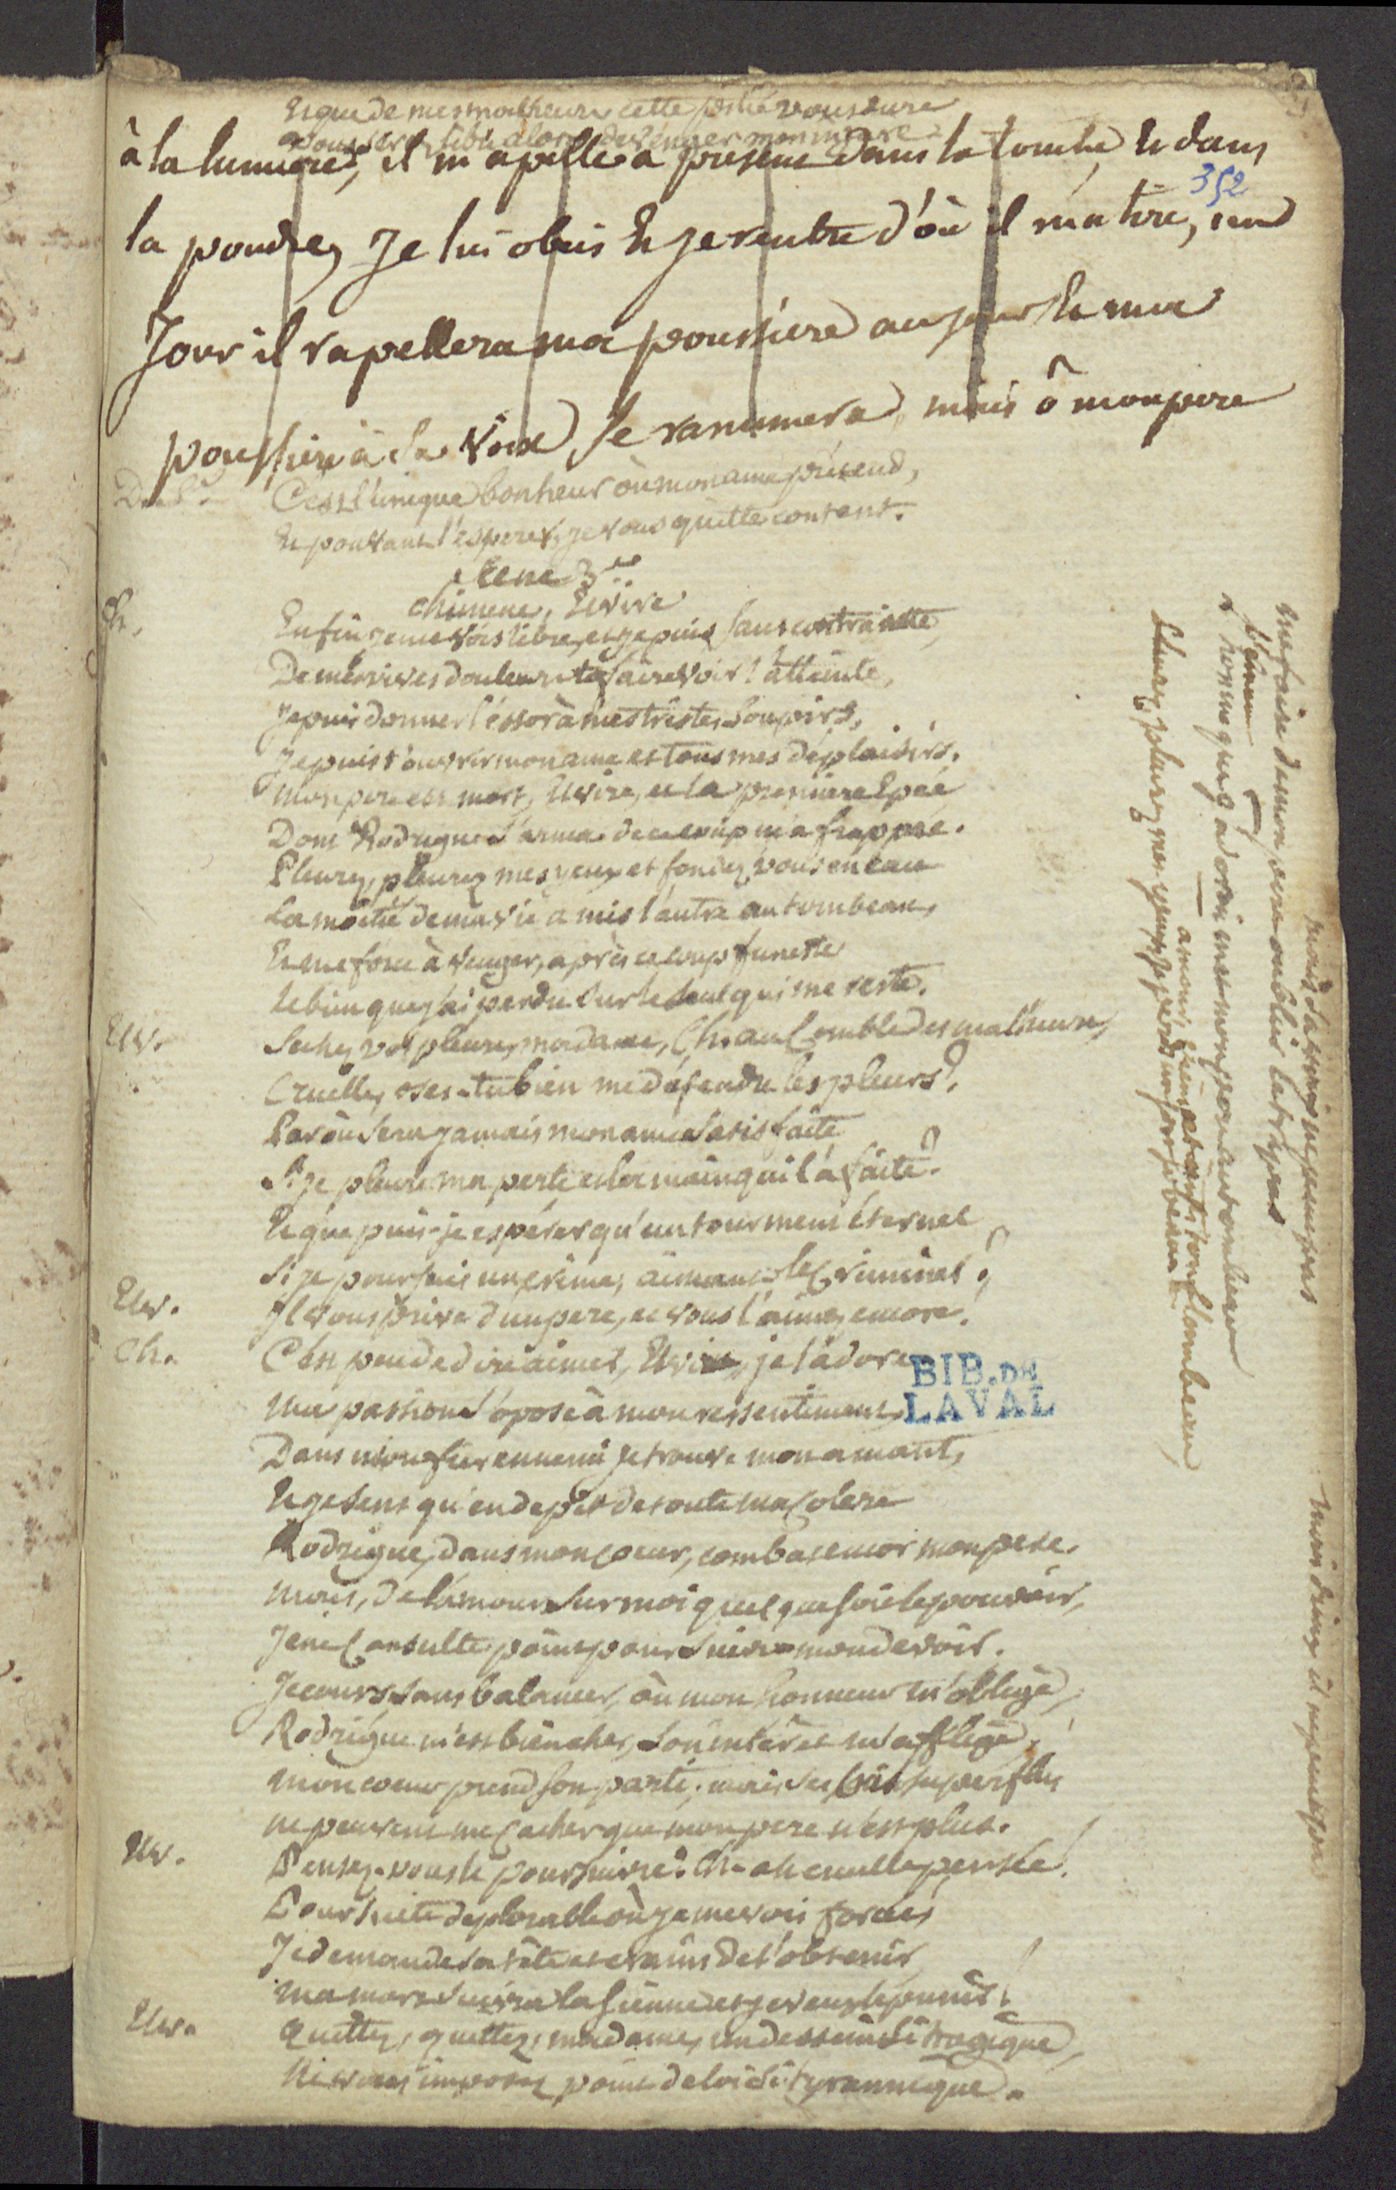 Et que de mes malheurs cette pitié vous dure
vous serez libre alors de venger mon injure
à la lumiere, il m'apelle a present dans la tombe et dans
352
la poudre, Je lui obeis et je rentre d'où il m'a tiré, un
Jour il rapellera ma poussiere au jour et ma
poussiere à sa voix se ranimera, mais ô mon pere
C'est l'unique bonheur où mon ame prétend,
Et pouvant l'esperer, je vous quitte content.
scene 3e.
chimene, Elvire
Ch. Enfin je me vois libre, et je puis sans contrainte,
De mes vives douleurs te faire voir l'atteinte,
Je puis donner l'essor à mes tristes soupirs,
Je puis t'ouvrir mon ame et tous mes déplaisirs.
mon pere est mort, Elvire, et la premiere Epée
Dont Rodrigue s'arma de ce coup m'a frappée.
Pleurez, pleurez mes yeux et fondez vous en eau
La moitié de ma vie a mis l'autre au tombeau,
Et me force à venger, après ce coup funeste
Le bien que j'ai perdu sur le seul qui me reste.
Elv. Sechez vos pleurs, madame, Ch. au comble des malheurs,
Cruelle, oses-tu bien me défendre les pleurs?
Par où sera jamais mon ame satisfaite
Si je pleure ma perte et la main qui l'a faite?
Et que puis-je espérer qu'un tourment éternel
Si je poursuis un crime, aimant le Criminel?
Elv. Il vous prive d'un pere, et vous l'aimez encore.
Ch. C'est peu de dire aimer, Elvire, je l'adore
Ma passion s'opose à mon ressentiment,
Dans mon fier ennemi je trouve mon amant,
Et je sens qu'en depit de toute ma Colere
Rodrigue, dans mon coeur, combat encor mon pere.
Mais, de l'amour sur moi quel que soit le pouvoir,
Je ne Consulte point pour suivre mon devoir.
Je cours sans balancer, où mon honneur m'oblige,
Rodrigue m'est bien cher, son intérêt m'afflige,
Mon coeur prend son parti, mais ses cris superflus
ne peuvent me Cacher que mon pere n'est plus.
Elv. Pensez-vous le poursuivre? Ch. ah cruelle pensée!
Poursuite deplorable où je me vois forcée!
Je demande sa tête et crains de l'obtenir
Ma mort suivra la sienne et je veux le punir!
Elv. Quittez, quittez, madame, un dessein si tragique,
Ne vous imposez point de loi si tyrannique.
mais
me faire de mon pere oublier le trepas
au tombeau
flambeau
pleurez mes yeux
BIB. DE
LAVAL